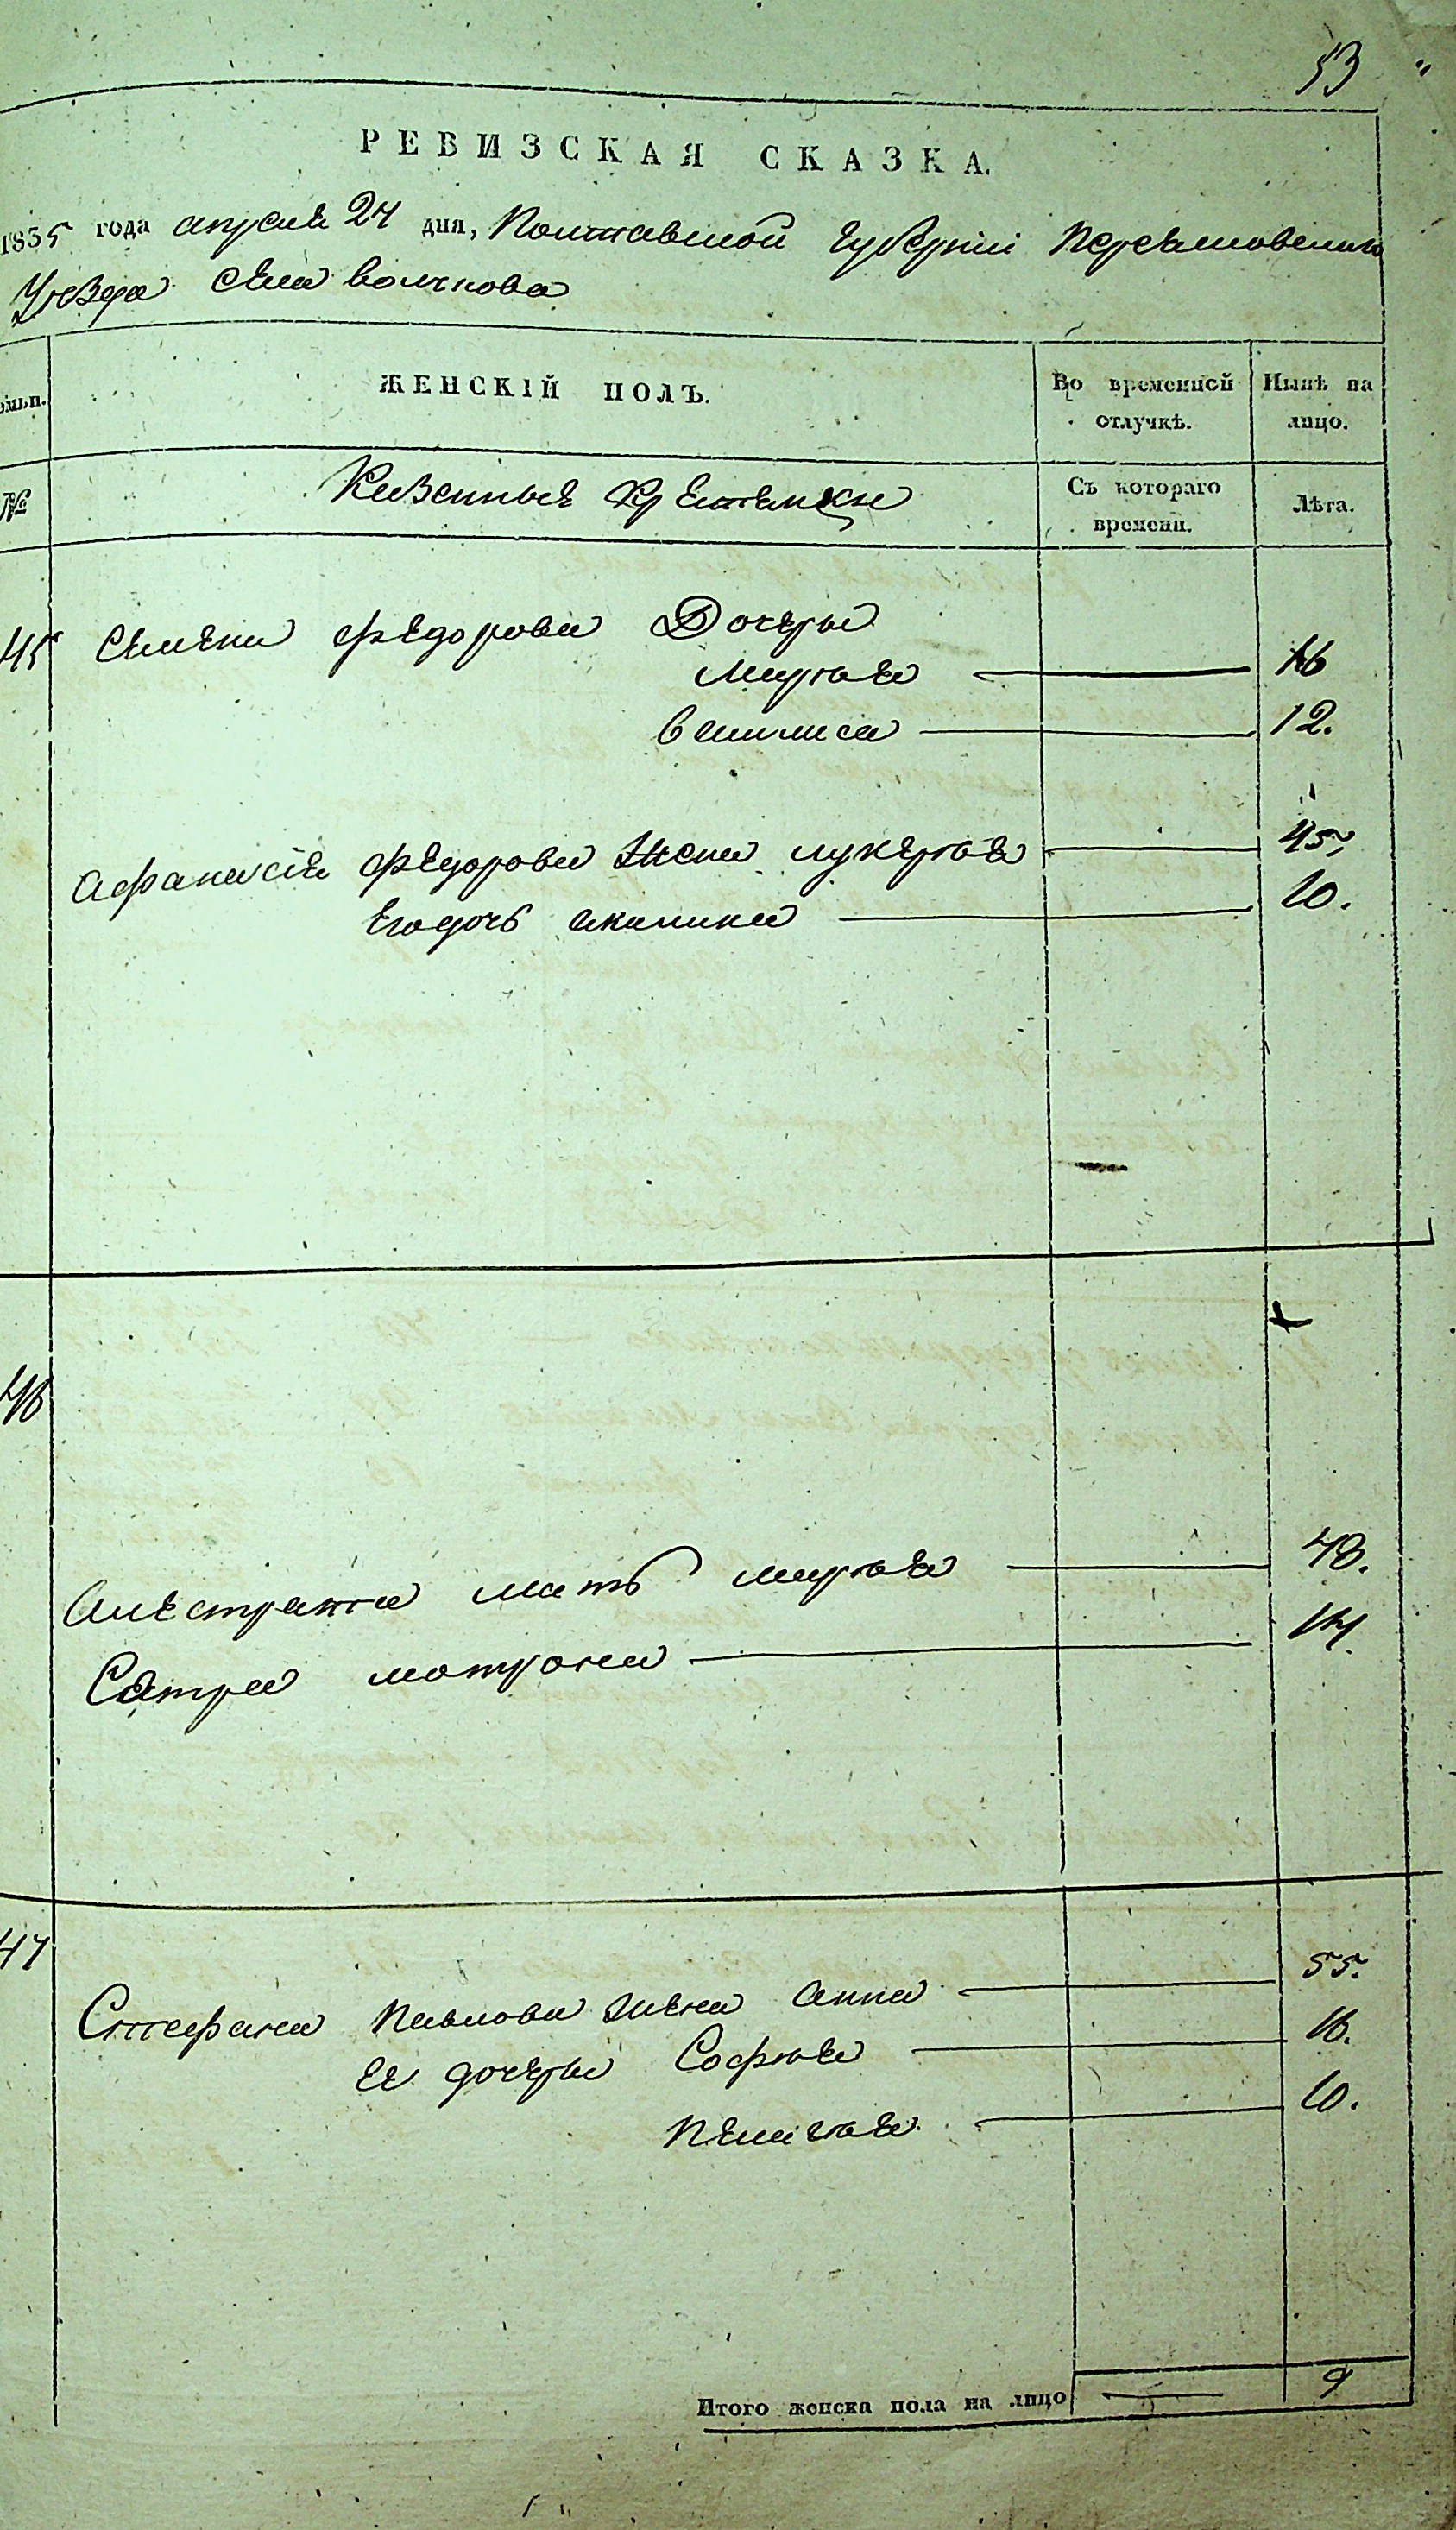 53
РЕВИЗСКАЯ СКАЗКА.
1835 года апреля 24 дня, Полтавской губернии Переяславскаго
Уезда села волчкова
ЖЕНСКІЙ ПОЛЪ.
Во временной отлучкѣ.
Нынѣ на лицо.
№
Казенные крестьянки
Съ котораго времени.
Лѣта.
45 Семена федорова Дочеры
марья — 16
василиса — 12.
афанасия федорова жена лукерья — 45.
его дочь акилина — 10.
46
мать марья — 48.
Сестра мотрона — 14.
47
Стефана павлова жена анна — 55.
ее дочеры Софья — 16.
пелагея — 10.
Итого женска пола на лицо — 9